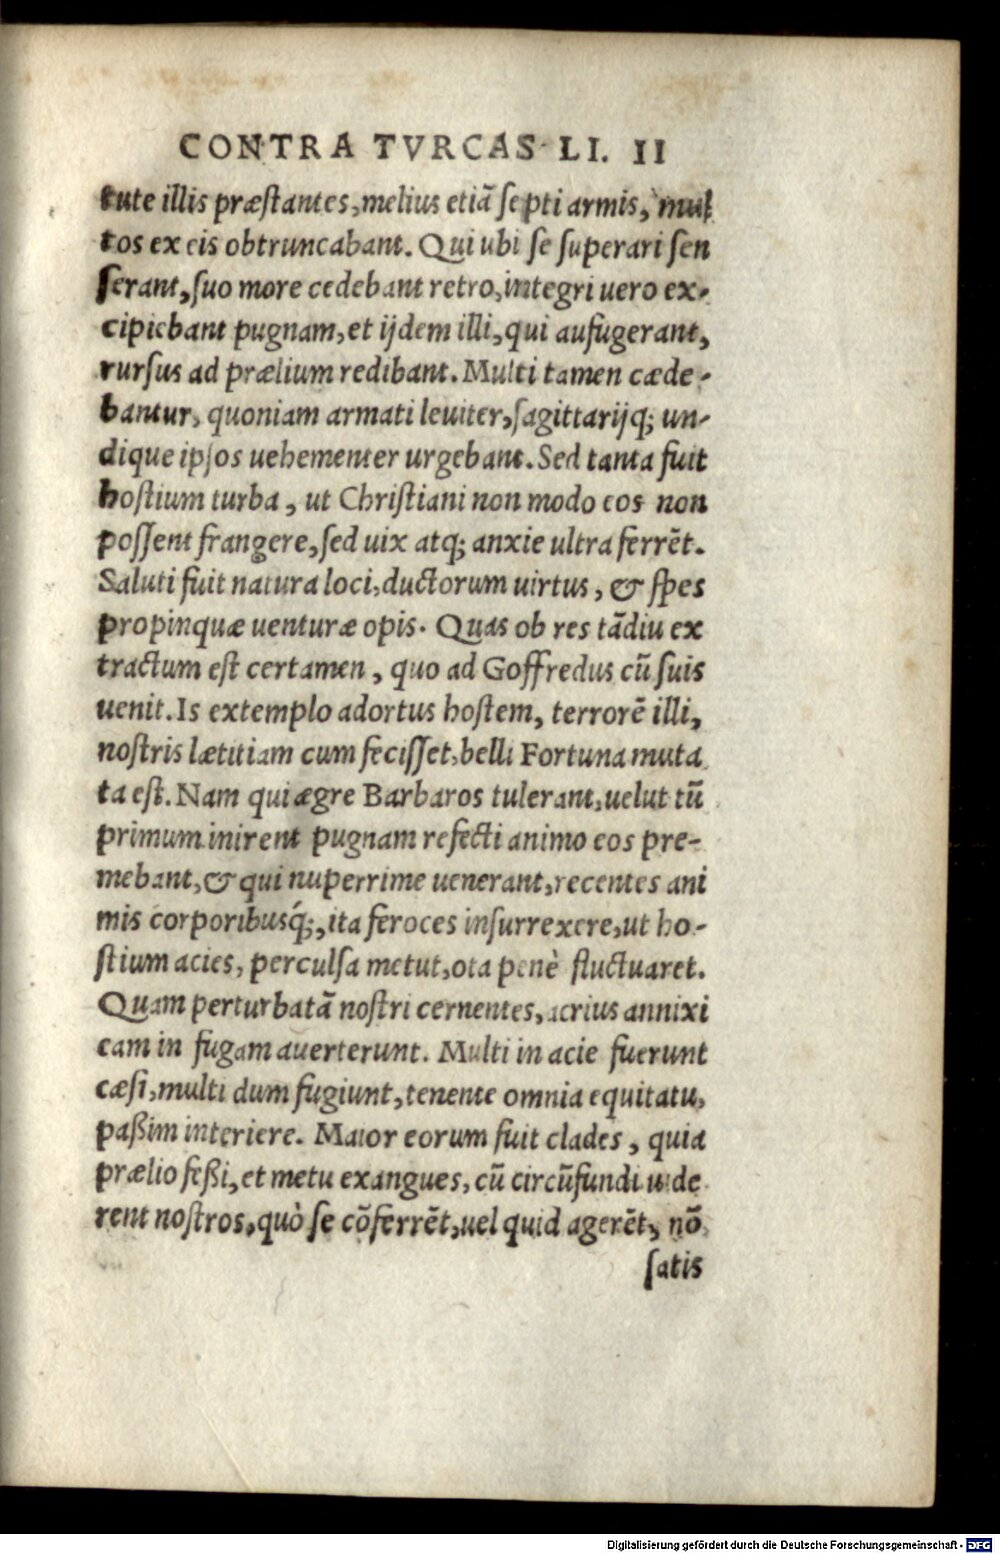 CONTRA TVRCAS LI. II
tute illis præſtantes, melius etiã ſepti armis, mul
tos ex eis obtruncabant. Qui ubi ſe ſuperari ſen
ſerant, ſuo more cedebant retro, integri uero ex-
cipiebant pugnam, et ijdem illi, qui aufugerant,
rurſus ad prælium redibant. Multi tamen cæde-
bantur, quoniam armati leuiter, ſagittarijq; un-
dique ipſos uehementer urgebant. Sed tanta fuit
hoſtium turba, ut Chriſtiani non modo eos non
poſſent frangere, ſed uix atq; anxie ultra ferrẽt.
Saluti fuit natura loci, ductorum uirtus, & ſpes
propinquæ uenturæ opis. Quas ob res tãdiu ex
tractum eſt certamen, quo ad Goffredus cũ ſuis
uenit. Is extemplo adortus hoſtem, terrorẽ illi,
noſtris lætitiam cum feciſſet, belli Fortuna muta
ta eſt. Nam qui ægre Barbaros tulerant, uelut tũ
primum inirent pugnam refecti animo eos pre-
mebant, & qui nuperrime uenerant, recentes ani
mis corporibusq́;, ita feroces inſurrexere, ut ho-
ſtium acies, perculſa metut, ota penè fluctuaret.
Quam perturbatã noſtri cernentes, acrius annixi
eam in fugam auerterunt. Multi in acie fuerunt
cæſi, multi dum fugiunt, tenente omnia equitatu,
paßim interiere. Maior eorum fuit clades, quia
prælio feßi, et metu exangues, cũ circũfundi uide
rent noſtros, quò ſe cõferrẽt, uel quid agerẽt, nõ
ſatis
Digitalisierung gefördert durch die Deutsche Forschungsgemeinschaft - DFG